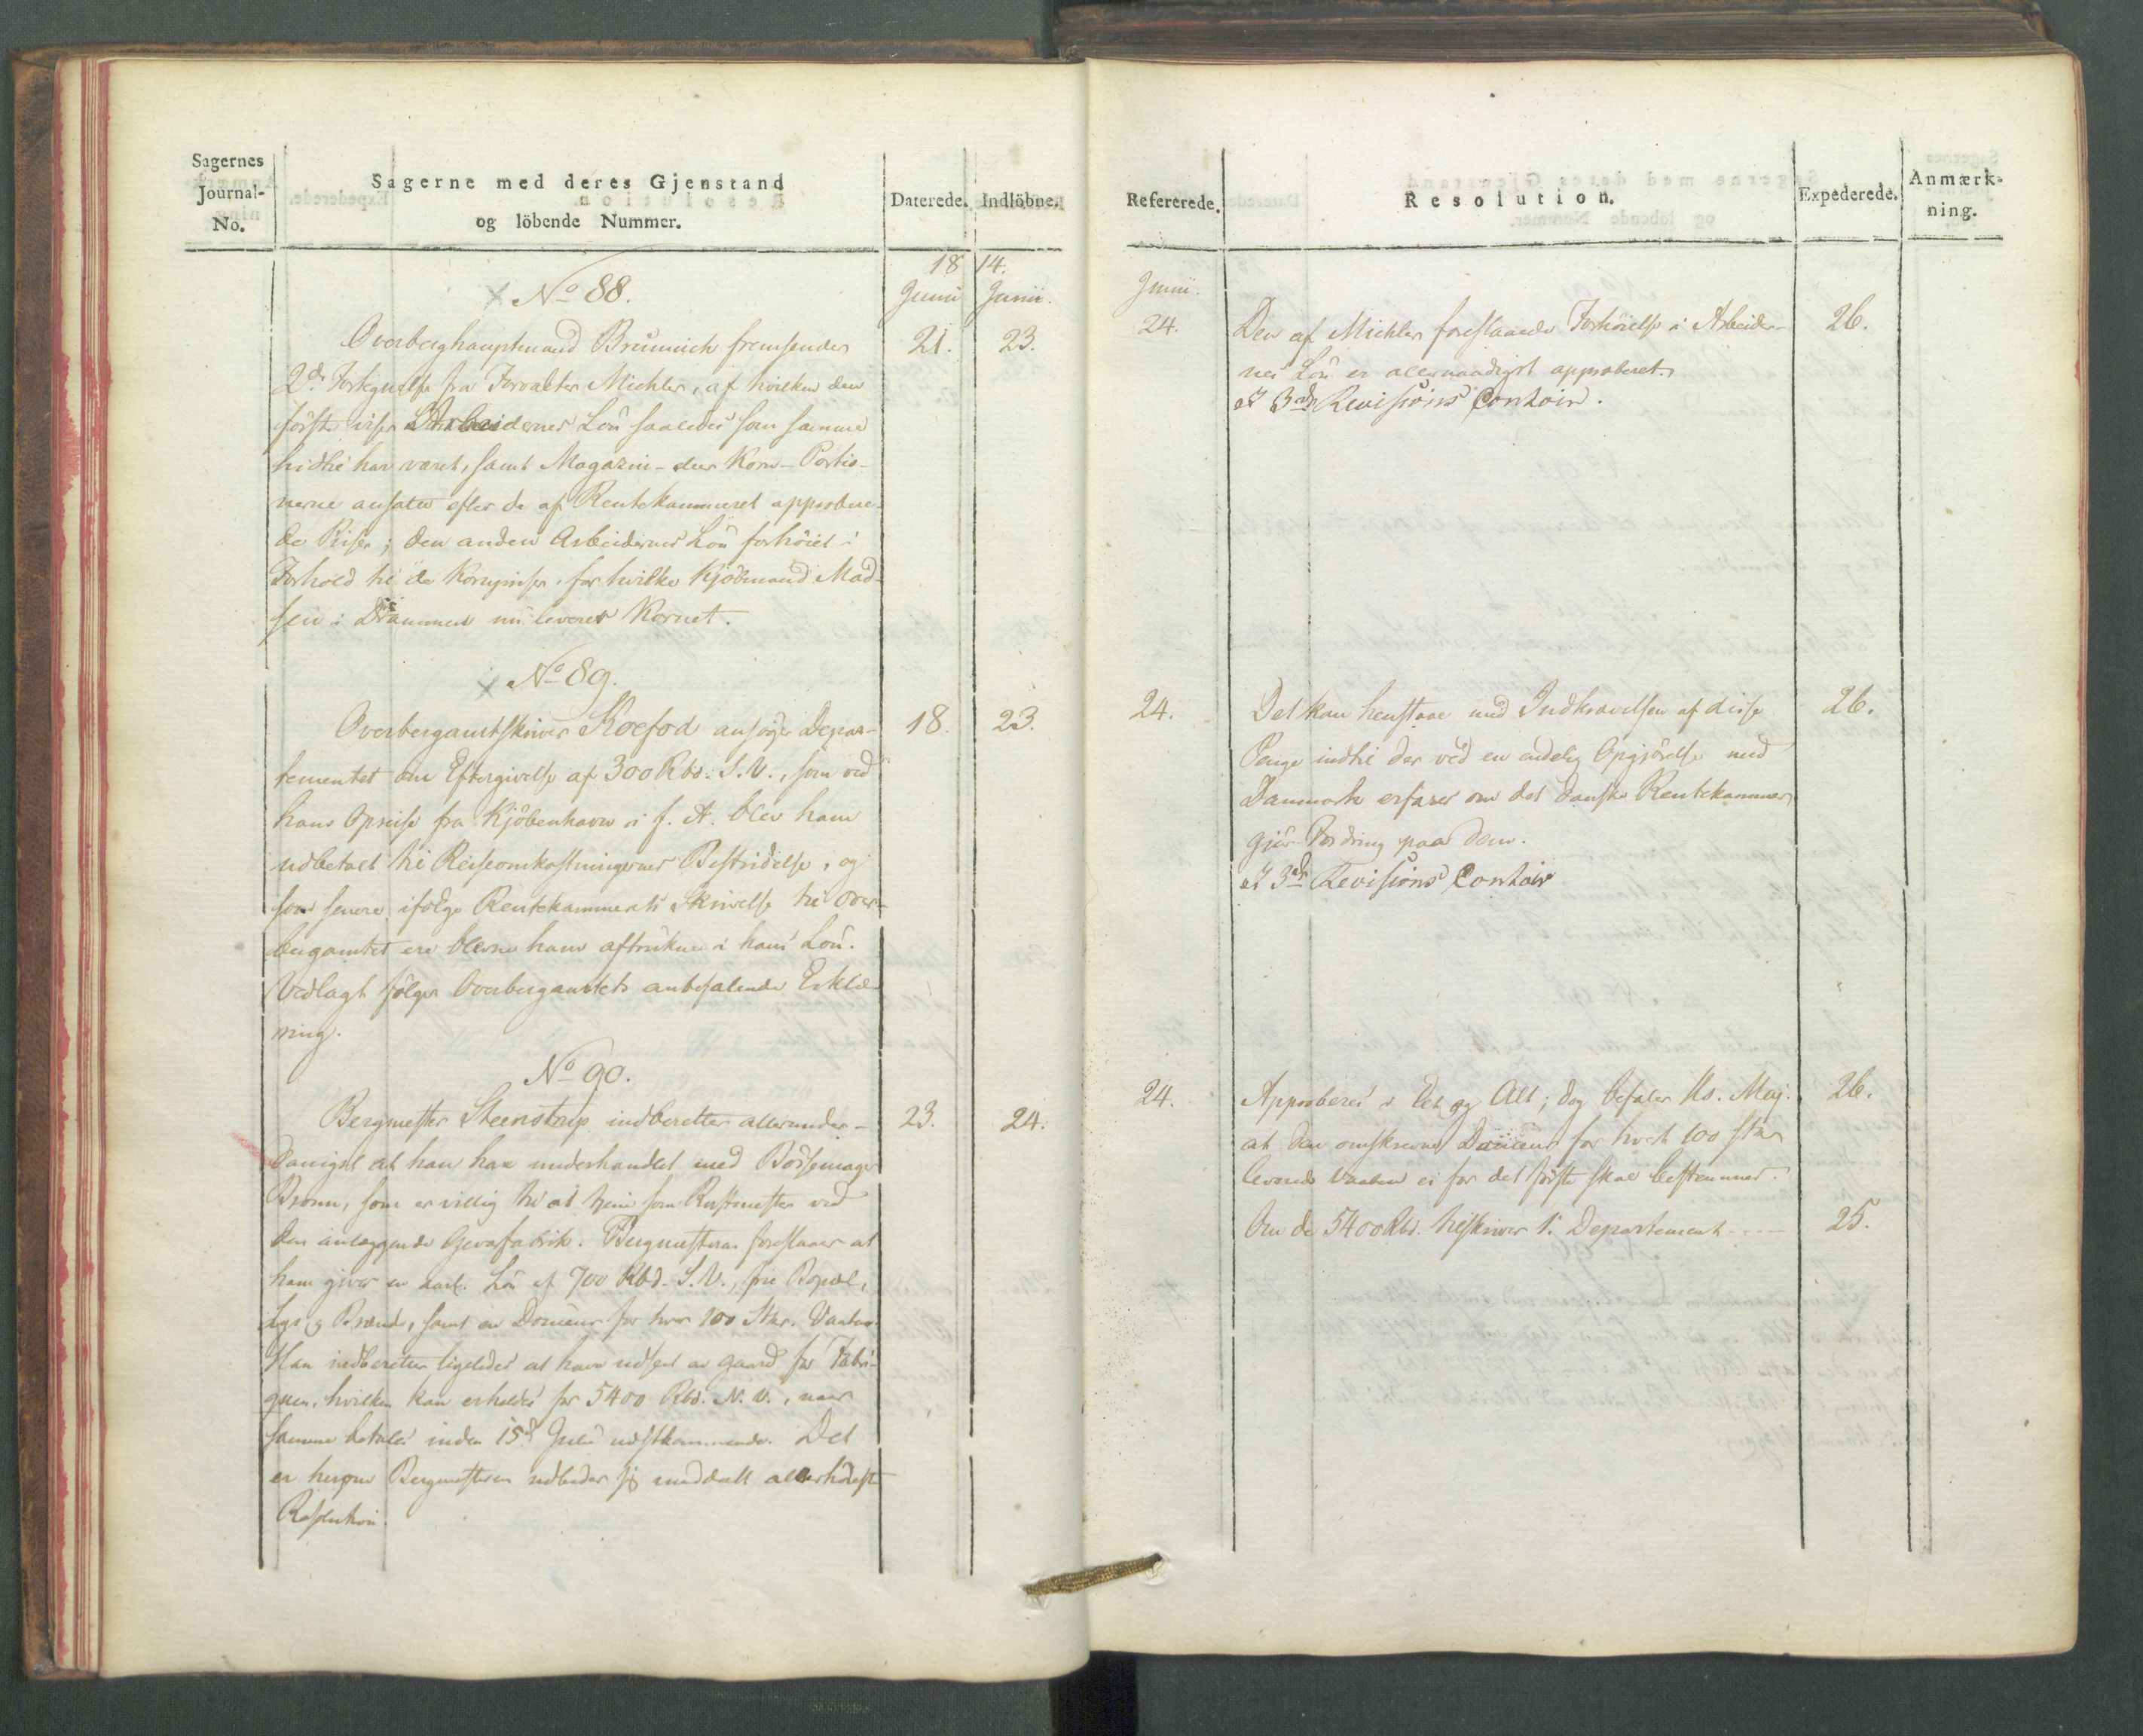 Sagernes
Journal-
No.
Sagerne med deres Gjenstand
og löbende Nummer.
Daterede.
Indlöbne.
18 14.
Junii Junii.
No 88.
Overberghauptmand Brünnich fremsender
21.
23.
2de Fortegnelser fra Forvalter Michler, af hvilken den
förste viser Arbeidernes Lön saaledes som samme
hidtil har været, samt Magazin- eller Korn-Portio-
nerne ansatte efter de af Rentekammeret approbere-
de Priser; den anden Arbeidernes Lön forhöiet i
Forhold til de Kornpriser, for hvilke Kjöbmand Mad-
sen i Drammen nu leverer Kornet.
No 89.
Overbergamtskriver Koefod ansöger Depar-
18.
23.
tementet om Eftergivelse af 300 Rbd. S.V., som ved
hans Opreise fra Kjöbenhavn i f. A. blev ham
udbetalt til Reiseomkostningernes Bestridelse, og
som senere ifölge Rentekammerets Skrivelse til Over-
bergamtet ere blevne ham aftrukne i hans Lön.
Vedlagt fölger Overbergamtets anbefalende Erklæ-
ring.
No 90.
Bergmester Steenstrup indberetter allerunder-
23.
24.
danigst at han har underhandlet med Bössemager
Bronn, som er villig til at tjene som Rustmester ved
den anlæggende Geværfabrik. Bergmesteren foreslaaer at
ham gives en aarl. Lön af 700 Rbd. S.V., frie Bopæl,
Lys og Brænde, samt en Douceur for hver 100 Stkr. Vaaben.
Han indberetter ligeledes at have udseet en Gaard for Fabri-
quen, hvilken kan erholdes for 5400 Rbd. N.V., naar
samme betales inden 15de Julii nestkommende. Det
er herover Bergmesteren udbeder sig meddeelt allerhöiest
Resolution.
Refererede.
Resolution.
Expederede.
Anmærk-
ning.
Junii.
24.
Den af Michler foreslaaede Forhöielse i Arbeider-
26.
nes Lön er allernaadigst approberet.
at 3die Revisions Contoir.
24.
Det kan henstaae med Indkrævelsen af disse
26.
Penge indtil der ved en endelig Opgjörelse med
Danmark erfares om det danske Rentekammer
gjör Fordring paa dem.
at 3die Revisions Contoir
24.
Approberes i Eet og Alt; dog befaler Hs. Maj.
26.
at den omskrevne Douceur for hvert 100 stkr
leverede Vaaben ei for det förste skal bestemmes.
Om de 5400 Rbd. tilskrives 1. Departement ----
25.